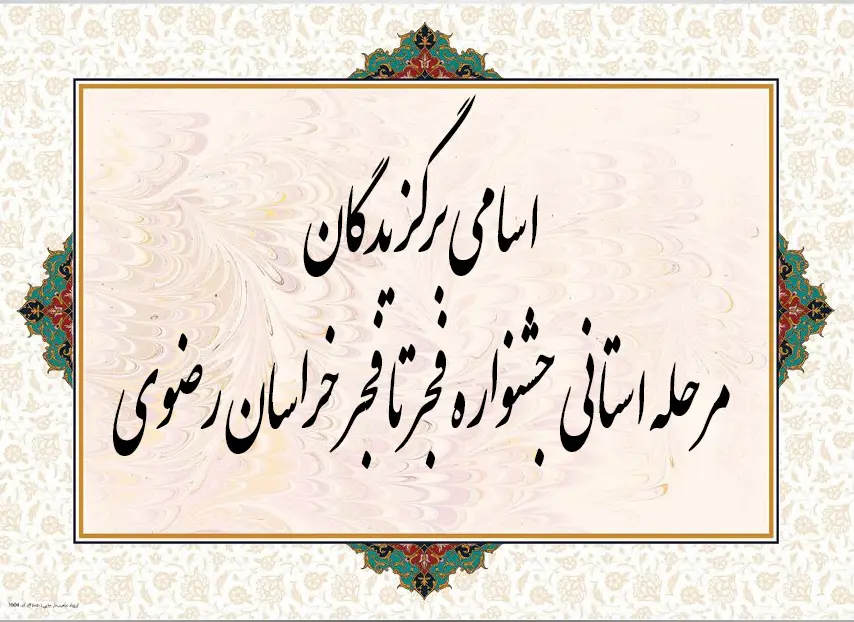 اسامی برگزیدگان
مرحله استانی جشنواره فجر تا فجر خراسان رضوی